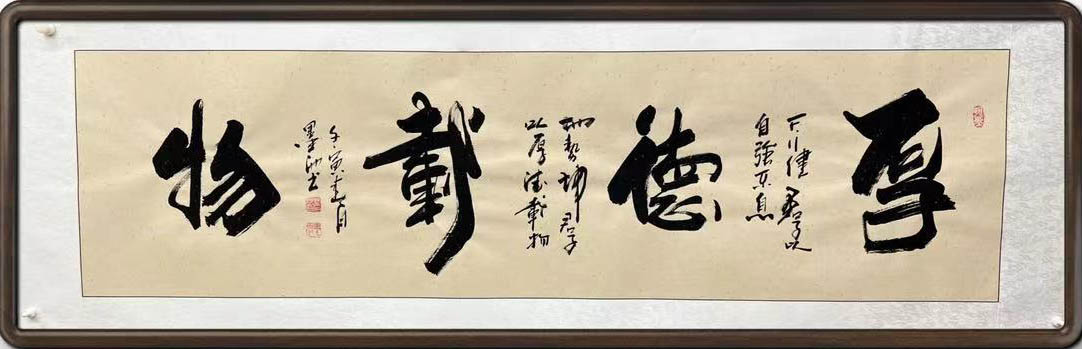 厚德載物
天行健君子以
自強不息
地勢坤君子
以厚德載物
壬寅春月
墨书